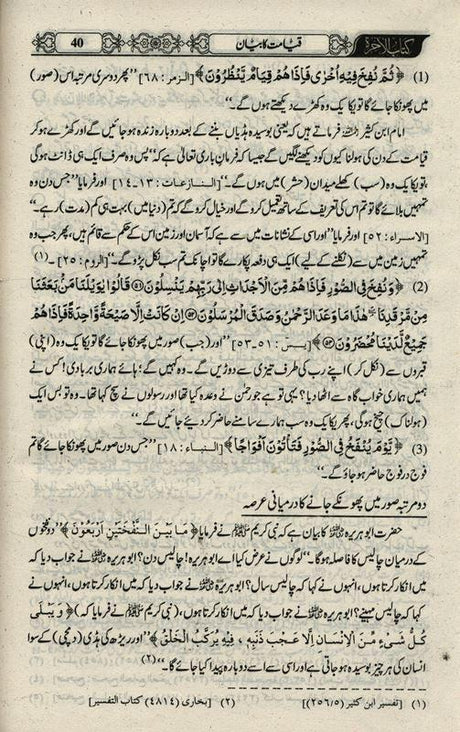 کتاب الآخرۃ
قیامت کا بیان
40
(1) ﴿ثُمَّ نُفِخَ فِيهِ أُخْرٰى فَإِذَا هُمْ قِيَامٌ يَنْظُرُوْنَ﴾ [الزمر: ٦٨] ”پھر دوسری مرتبہ اس (صور)
میں پھونکا جائے گا تو یکا یک وہ کھڑے دیکھتے ہوں گے۔“
امام ابن کثیرؒ فرماتے ہیں کہ یعنی بوسیدہ ہڈیاں بننے کے بعد دوبارہ زندہ ہو جائیں گے اور کھڑے ہو کر
قیامت کے دن کی ہولناکیوں کو دیکھنے لگیں گے جیسا کہ فرمانِ باری تعالیٰ ہے کہ ”پس وہ صرف ایک ہی ڈانٹ ہو گی
، تو یکا یک وہ (سب) کھلے میدان (حشر) میں ہوں گے۔“ [النازعات: ١٣-١٤] اور فرمایا ”جس دن وہ
تمہیں بلائے گا تو تم اس کی تعریف کے ساتھ تعمیل کرو گے اور خیال کرو گے کہ تم (دنیا میں) بہت ہی کم (مدت) رہے۔“
[الاسراء: ٥٢] اور فرمایا ”اور اسی کے نشانات میں سے ہے کہ آسمان اور زمین اس کے حکم سے قائم ہیں، پھر جب وہ
تمہیں زمین میں سے (نکلنے کے لیے) ایک ہی دفعہ پکارے گا تو اچانک تم سب نکل پڑو گے۔“ [الروم: ٢٥]۔(١)
(2) ﴿وَنُفِخَ فِي الصُّوْرِ فَإِذَا هُمْ مِّنَ الْأَجْدَاثِ إِلٰى رَبِّهِمْ يَنْسِلُوْنَ ۝٥١ قَالُوْا يٰوَيْلَنَا مَنْ بَعَثَنَا
مِنْ مَّرْقَدِنَا هٰذَا مَا وَعَدَ الرَّحْمٰنُ وَصَدَقَ الْمُرْسَلُوْنَ ۝٥٢ إِنْ كَانَتْ إِلَّا صَيْحَةً وَّاحِدَةً فَإِذَا هُمْ
جَمِيْعٌ لَّدَيْنَا مُحْضَرُوْنَ ۝٥٣﴾ [یس: ٥١-٥٣] ”اور (جب) صور میں پھونکا جائے گا تو یکا یک وہ (اپنی)
قبروں سے (نکل کر) اپنے رب کی طرف تیزی سے دوڑیں گے۔ وہ کہیں گے: ہائے ہماری بربادی! کس نے
ہمیں ہماری خواب گاہ سے اٹھا دیا؟ یہی تو ہے جو رحمٰن نے وعدہ کیا تھا اور رسولوں نے سچ کہا تھا۔ وہ تو بس ایک
(ہولناک) چیخ ہو گی، پھر یکا یک وہ سب ہمارے سامنے حاضر کر دیئے جائیں گے۔“
(3) ﴿يَوْمَ يُنْفَخُ فِي الصُّوْرِ فَتَأْتُوْنَ أَفْوَاجًا﴾ [النباء: ١٨] ”جس دن صور میں پھونکا جائے گا تم
فوج در فوج حاضر ہو جاؤ گے۔“
دو مرتبہ صور میں پھونکے جانے کا درمیانی عرصہ
حضرت ابو ہریرہؓ کا بیان ہے کہ نبی کریم ﷺ نے فرمایا ﴿مَا بَيْنَ النَّفْخَتَيْنِ أَرْبَعُوْنَ﴾ ”دو نفخوں
کے درمیان چالیس کا فاصلہ ہو گا۔“ لوگوں نے عرض کیا اے ابو ہریرہ! چالیس دن؟ ابو ہریرہؓ نے جواب دیا کہ
میں انکار کرتا ہوں، انہوں نے کہا کہ چالیس سال؟ ابو ہریرہؓ نے جواب دیا کہ میں انکار کرتا ہوں، انہوں نے
کہا کہ چالیس مہینے؟ ابو ہریرہؓ نے جواب دیا کہ میں انکار کرتا ہوں، (نبی کریم ﷺ نے فرمایا کہ) ﴿وَ يَبْلٰى
كُلُّ شَيْءٍ مِّنَ الْإِنْسَانِ إِلَّا عَجْبَ ذَنَبِهِ، فِيْهِ يُرَكَّبُ الْخَلْقُ﴾ ”اور ریڑھ کی ہڈی (دمچی) کے سوا
انسان کی ہر چیز بوسیدہ ہو جاتی ہے اور اسی سے اسے دوبارہ پیدا کیا جائے گا۔“(٢)
(١) [تفسیر ابن کثیر (٢٥٦/٥)] (٢) [بخاری (٤٨١٤) کتاب التفسیر]